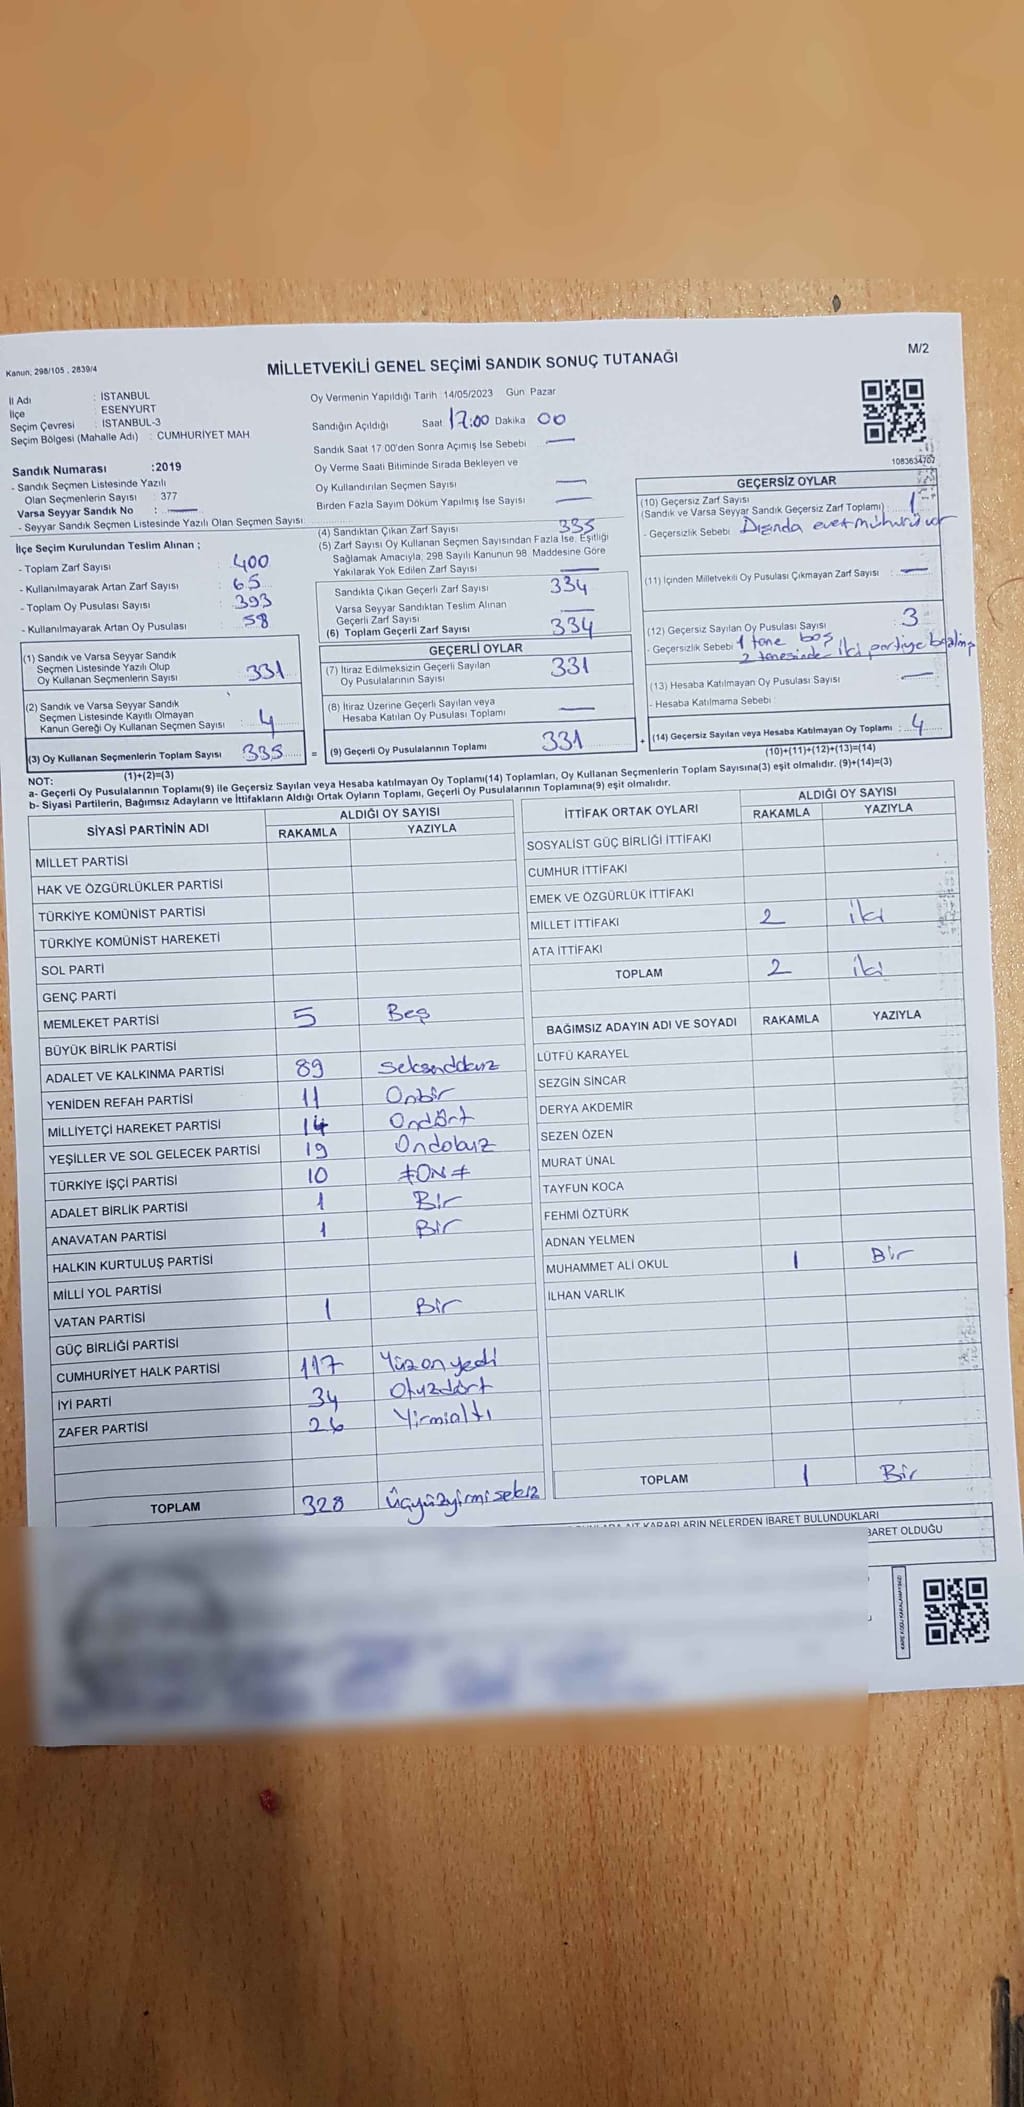 Kanun, 298/105 , 2839/4
MİLLETVEKİLİ GENEL SEÇİMİ SANDIK SONUÇ TUTANAĞI
M/2
İl Adı : İSTANBUL
İlçe : ESENYURT
Seçim Çevresi : İSTANBUL-3
Seçim Bölgesi (Mahalle Adı) : CUMHURİYET MAH
Sandık Numarası :2019
- Sandık Seçmen Listesinde Yazılı
Olan Seçmenlerin Sayısı : 377
Varsa Seyyar Sandık No : —
- Seyyar Sandık Seçmen Listesinde Yazılı Olan Seçmen Sayısı:
Oy Vermenin Yapıldığı Tarih :14/05/2023 Gün: Pazar
Sandığın Açıldığı Saat 17:00 Dakika 00
Sandık Saat 17 00'den Sonra Açımış İse Sebebi —
Oy Verme Saati Bitiminde Sırada Bekleyen ve
Oy Kullandırılan Seçmen Sayısı —
Birden Fazla Sayım Döküm Yapılmış İse Sayısı —
1083634702
İlçe Seçim Kurulundan Teslim Alınan ;
- Toplam Zarf Sayısı : 400
- Kullanılmayarak Artan Zarf Sayısı : 65
- Toplam Oy Pusulası Sayısı : 393
- Kullanılmayarak Artan Oy Pusulası : 58
(1) Sandık ve Varsa Seyyar Sandık
Seçmen Listesinde Yazılı Olup
Oy Kullanan Seçmenlerin Sayısı : 331
(2) Sandık ve Varsa Seyyar Sandık
Seçmen Listesinde Kayıtlı Olmayan
Kanun Gereği Oy Kullanan Seçmen Sayısı : 4
(3) Oy Kullanan Seçmenlerin Toplam Sayısı 335
(1)+(2)=(3)
(4) Sandıktan Çıkan Zarf Sayısı 335
(5) Zarf Sayısı Oy Kullanan Seçmen Sayısından Fazla İse, Eşitliği
Sağlamak Amacıyla, 298 Sayılı Kanunun 98. Maddesine Göre
Yakılarak Yok Edilen Zarf Sayısı —
Sandıkta Çıkan Geçerli Zarf Sayısı 334
Varsa Seyyar Sandıktan Teslim Alınan
Geçerli Zarf Sayısı —
(6) Toplam Geçerli Zarf Sayısı 334
GEÇERLİ OYLAR
(7) İtiraz Edilmeksizin Geçerli Sayılan
Oy Pusulalarının Sayısı 331
(8) İtiraz Üzerine Geçerli Sayılan veya
Hesaba Katılan Oy Pusulası Toplamı —
= (9) Geçerli Oy Pusulalarının Toplamı 331
GEÇERSİZ OYLAR
(10) Geçersiz Zarf Sayısı
(Sandık ve Varsa Seyyar Sandık Geçersiz Zarf Toplamı) : 1
- Geçersizlik Sebebi : Dışında evet mührü var
(11) İçinden Milletvekili Oy Pusulası Çıkmayan Zarf Sayısı : —
(12) Geçersiz Sayılan Oy Pusulası Sayısı : 3
- Geçersizlik Sebebi 1 tane boş
2 tanesinde iki partiye
(13) Hesaba Katılmayan Oy Pusulası Sayısı : —
- Hesaba Katılmama Sebebi :
+ (14) Geçersiz Sayılan veya Hesaba Katılmayan Oy Toplamı : 4
(10)+(11)+(12)+(13)=(14)
NOT:
a- Geçerli Oy Pusulalarının Toplamı(9) ile Geçersiz Sayılan veya Hesaba katılmayan Oy Toplamı(14) Toplamları, Oy Kullanan Seçmenlerin Toplam Sayısına(3) eşit olmalıdır. (9)+(14)=(3)
b- Siyasi Partilerin, Bağımsız Adayların ve İttifakların Aldığı Ortak Oyların Toplamı, Geçerli Oy Pusulalarının Toplamına(9) eşit olmalıdır.
SİYASİ PARTİNİN ADI
ALDIĞI OY SAYISI
RAKAMLA YAZIYLA
MİLLET PARTİSİ
HAK VE ÖZGÜRLÜKLER PARTİSİ
TÜRKİYE KOMÜNİST PARTİSİ
TÜRKİYE KOMÜNİST HAREKETİ
SOL PARTİ
GENÇ PARTİ
MEMLEKET PARTİSİ 5 Beş
BÜYÜK BİRLİK PARTİSİ
ADALET VE KALKINMA PARTİSİ 89 Seksendokuz
YENİDEN REFAH PARTİSİ 11 Onbir
MİLLİYETÇİ HAREKET PARTİSİ 14 Ondört
YEŞİLLER VE SOL GELECEK PARTİSİ 19 Ondokuz
TÜRKİYE İŞÇİ PARTİSİ 10 ≠ON≠
ADALET BİRLİK PARTİSİ 1 Bir
ANAVATAN PARTİSİ 1 Bir
HALKIN KURTULUŞ PARTİSİ
MİLLİ YOL PARTİSİ
VATAN PARTİSİ 1 Bir
GÜÇ BİRLİĞİ PARTİSİ
CUMHURİYET HALK PARTİSİ 117 Yüzonyedi
İYİ PARTİ 34 Otuzdört
ZAFER PARTİSİ 26 Yirmialtı
TOPLAM 328 Üçyüzyirmisekiz
İTTİFAK ORTAK OYLARI
ALDIĞI OY SAYISI
RAKAMLA YAZIYLA
SOSYALİST GÜÇ BİRLİĞİ İTTİFAKI
CUMHUR İTTİFAKI
EMEK VE ÖZGÜRLÜK İTTİFAKI
MİLLET İTTİFAKI 2 iki
ATA İTTİFAKI
TOPLAM 2 iki
BAĞIMSIZ ADAYIN ADI VE SOYADI RAKAMLA YAZIYLA
LÜTFÜ KARAYEL
SEZGİN SİNCAR
DERYA AKDEMİR
SEZEN ÖZEN
MURAT ÜNAL
TAYFUN KOCA
FEHMİ ÖZTÜRK
ADNAN YELMEN
MUHAMMET ALİ OKUL 1 Bir
İLHAN VARLIK
TOPLAM 1 Bir
KARARLARIN NELERDEN İBARET BULUNDUKLARI
BARET OLDUĞU